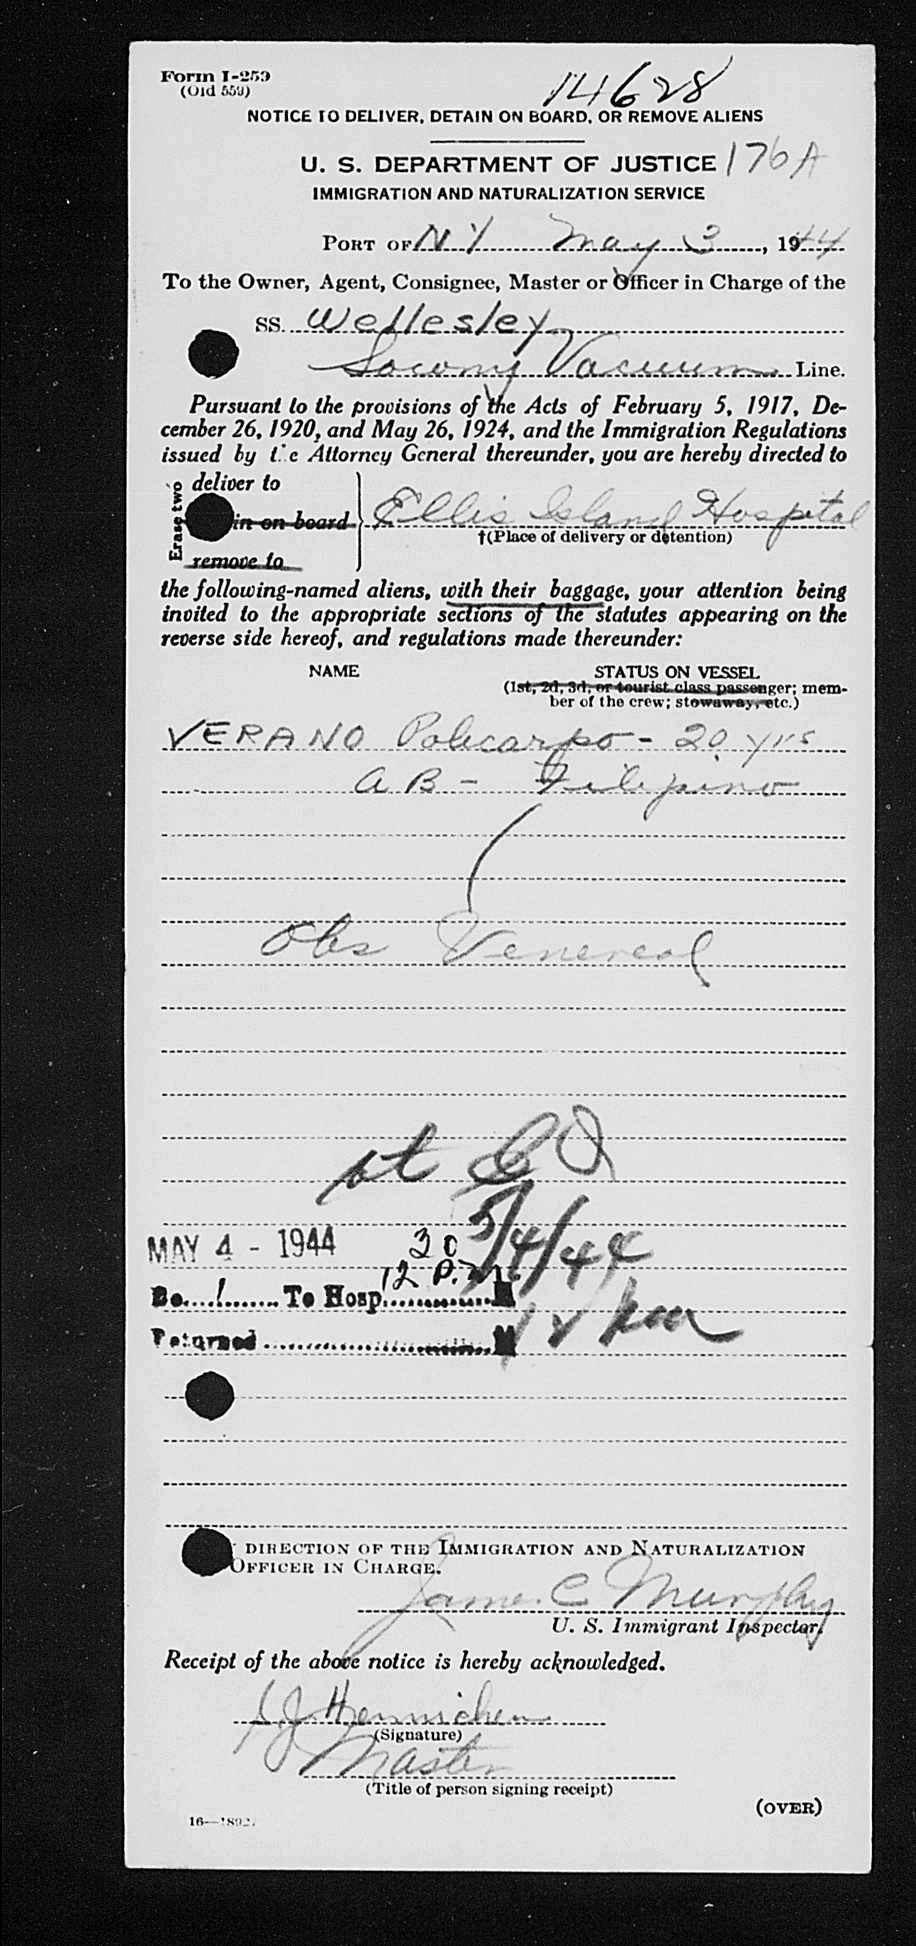 Form I-259
(Old 559)
14628
NOTICE TO DELIVER, DETAIN ON BOARD, OR REMOVE ALIENS
U. S. DEPARTMENT OF JUSTICE 176A
IMMIGRATION AND NATURALIZATION SERVICE
PORT OF NY May 3, 1944
To the Owner, Agent, Consignee, Master or Officer in Charge of the
SS. Wellesley
Socony Vacuum Line.
Pursuant to the provisions of the Acts of February 5, 1917, De-
cember 26, 1920, and May 26, 1924, and the Immigration Regulations
issued by the Attorney General thereunder, you are hereby directed to
Erase two
deliver to
in on board Ellis Island Hospital
†(Place of delivery or detention)
remove to
the following-named aliens, with their baggage, your attention being
invited to the appropriate sections of the statutes appearing on the
reverse side hereof, and regulations made thereunder:
NAME STATUS ON VESSEL
(1st, 2d, 3d, or tourist class passenger; mem-
ber of the crew; stowaway, etc.)
VERANO Policarpo - 20 yrs
AB - Filipino
Obs Venereal
at
5/4/44
MAY 4 - 1944 30
De. 1 To Hosp. 12 P.M. M
Returned M 12
DIRECTION OF THE IMMIGRATION AND NATURALIZATION
OFFICER IN CHARGE.
James C Murphy
U. S. Immigrant Inspector.
Receipt of the above notice is hereby acknowledged.
(Signature)
Master
(Title of person signing receipt)
(OVER)